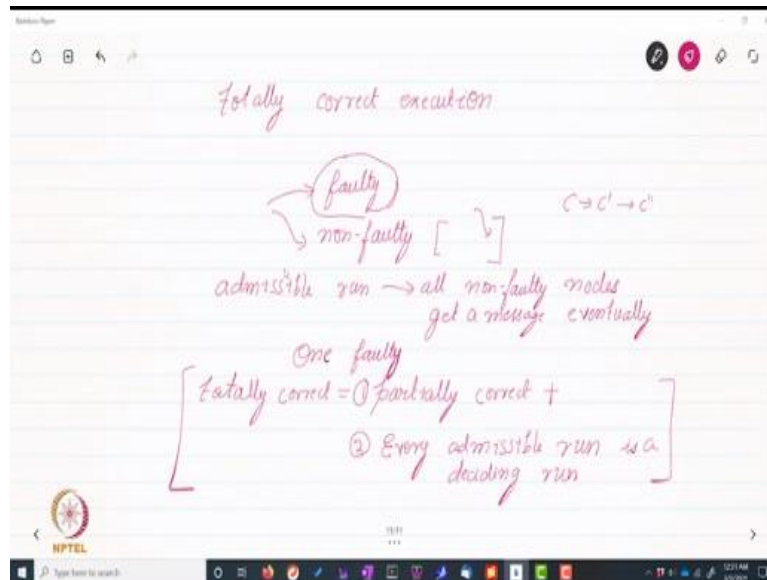 Bamboo Paper
Totally correct execution
faulty
C → C' → C"
non-faulty [ ]
admissible run → all non-faulty nodes
get a message eventually
One faulty
Totally correct = ① partially correct +
② Every admissible run is a
deciding run
NPTEL
Type here to search
12:31 AM